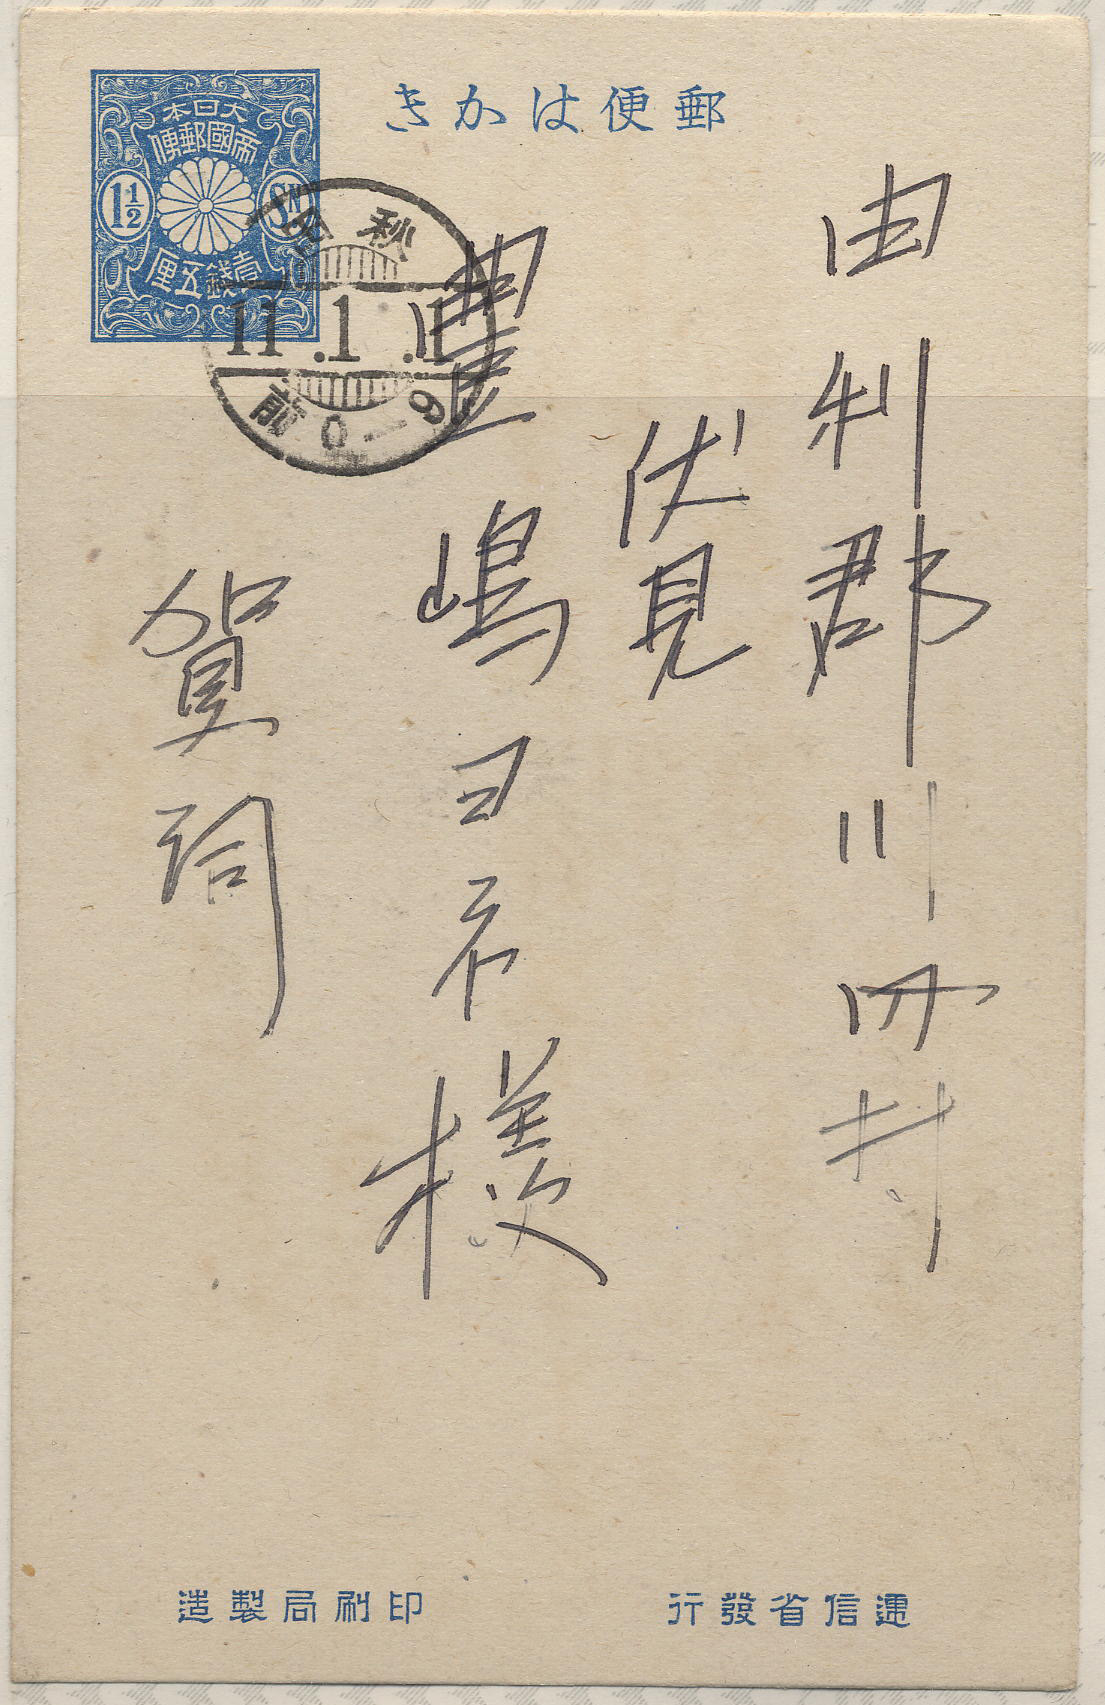 郵便はかき
大日本
帝國郵便
1½ SN
壹錢五厘
秋田
11.1.1
前 0-9
由利郡川内村
伏見
豊嶋
様
賀詞
遞信省發行
印刷局製造